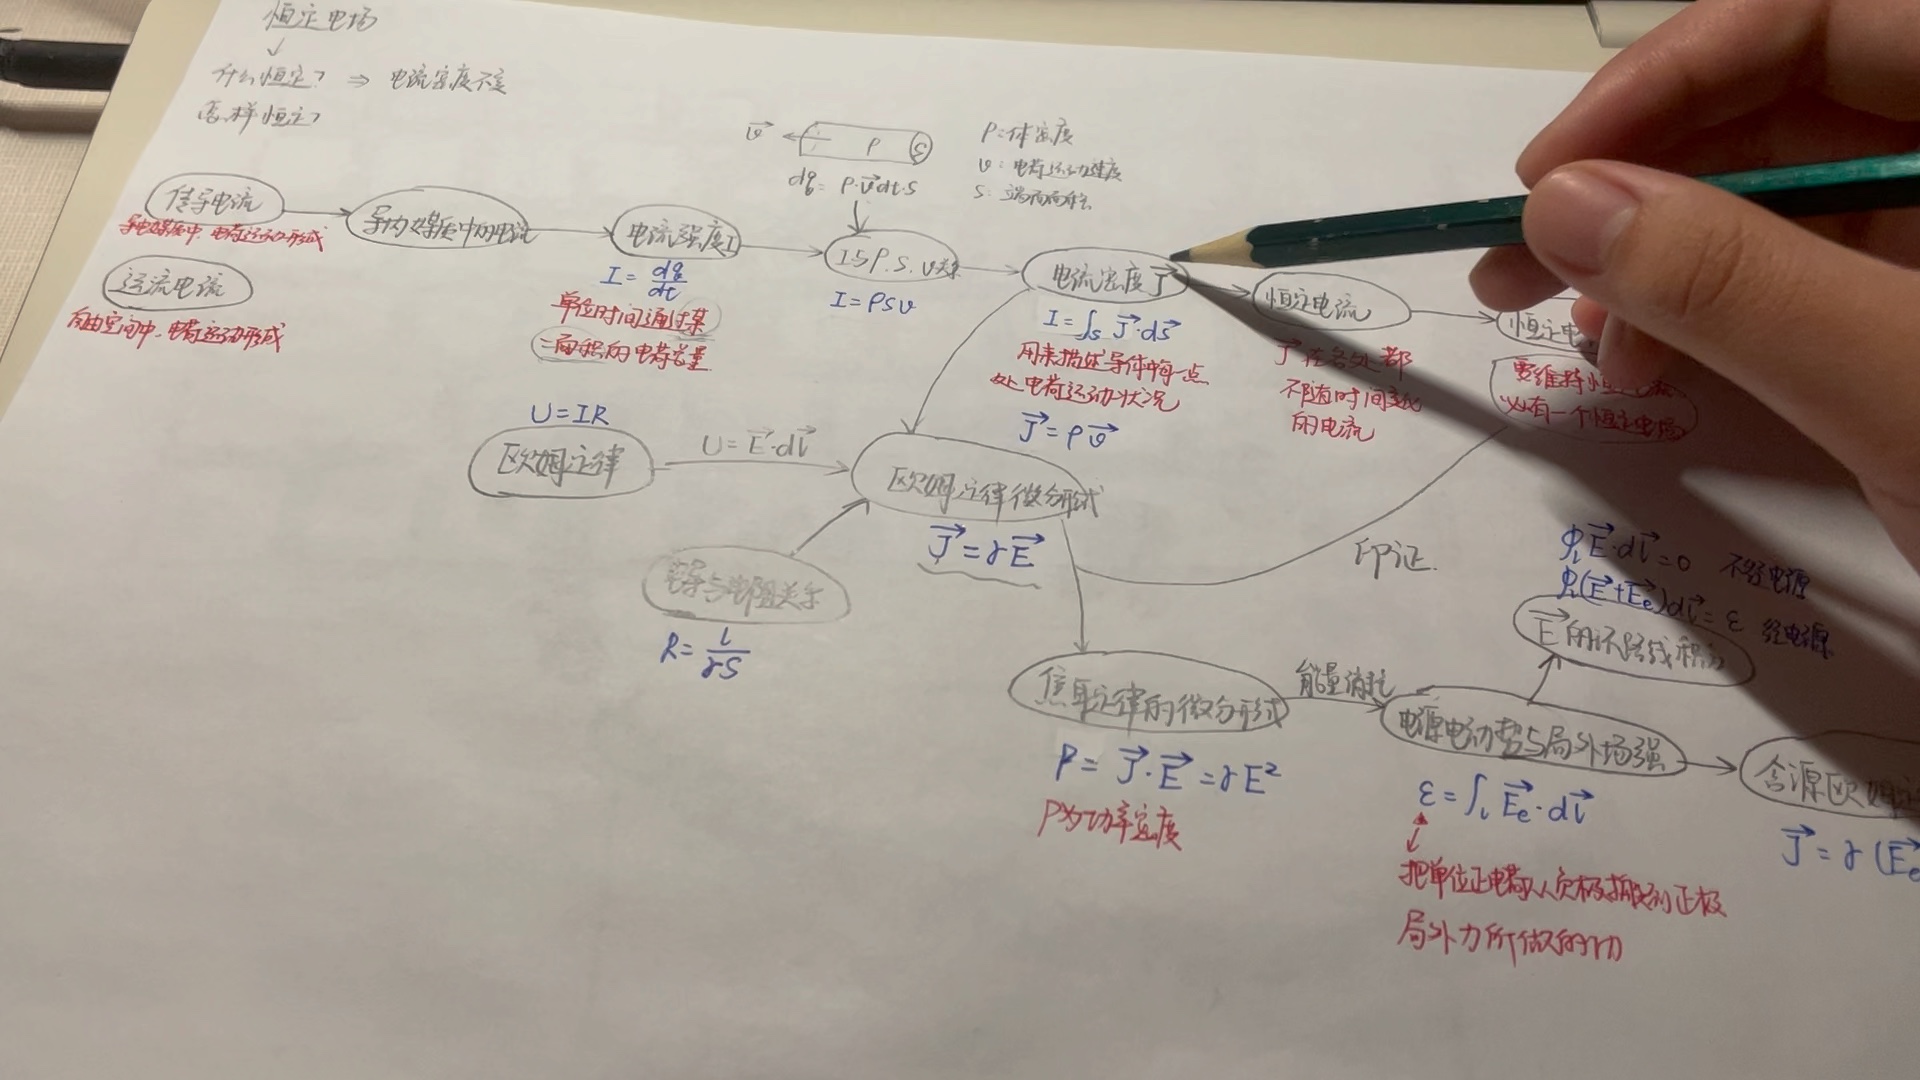 恒定电场
↓
什么恒定? ⇒ 电流密度不变
怎样恒定?
v⃗ ← ρ S
dq = ρ·v⃗dt·S
ρ:体密度
v:电荷运动速度
S:端面面积
传导电流
导电媒质中,电荷运动形成
运流电流
自由空间中,电荷运动形成
导电媒质中的电流
电流强度I
I = dq/dt
单位时间通过某
一面积的电荷总量
I与ρ.S.v关系
I = ρSv
电流密度J⃗
I = ∫s J⃗·dS⃗
用来描述导体中每一点
处电荷运动状况
J⃗ = ρv⃗
恒定电流
J⃗在各处都
不随时间变化
的电流
恒定电
要维持恒定
必有一个恒定电场
U = IR
欧姆定律
U = E⃗·dl⃗
欧姆定律微分形式
J⃗ = γE⃗
电导与电阻关系
R = l/γS
印证.
∮l E⃗·dl⃗ = 0 不经电源
∮l(E⃗+E⃗e)dl⃗ = ε 经电源
E⃗的环路线积分
焦耳定律的微分形式
P = J⃗·E⃗ = γE²
P为功率密度
能量消耗
电源电动势与局外场强
ε = ∫l E⃗e·dl⃗
把单位正电荷从负极搬到正极
局外力所做的功
含源欧姆定
J⃗ = γ(E⃗e